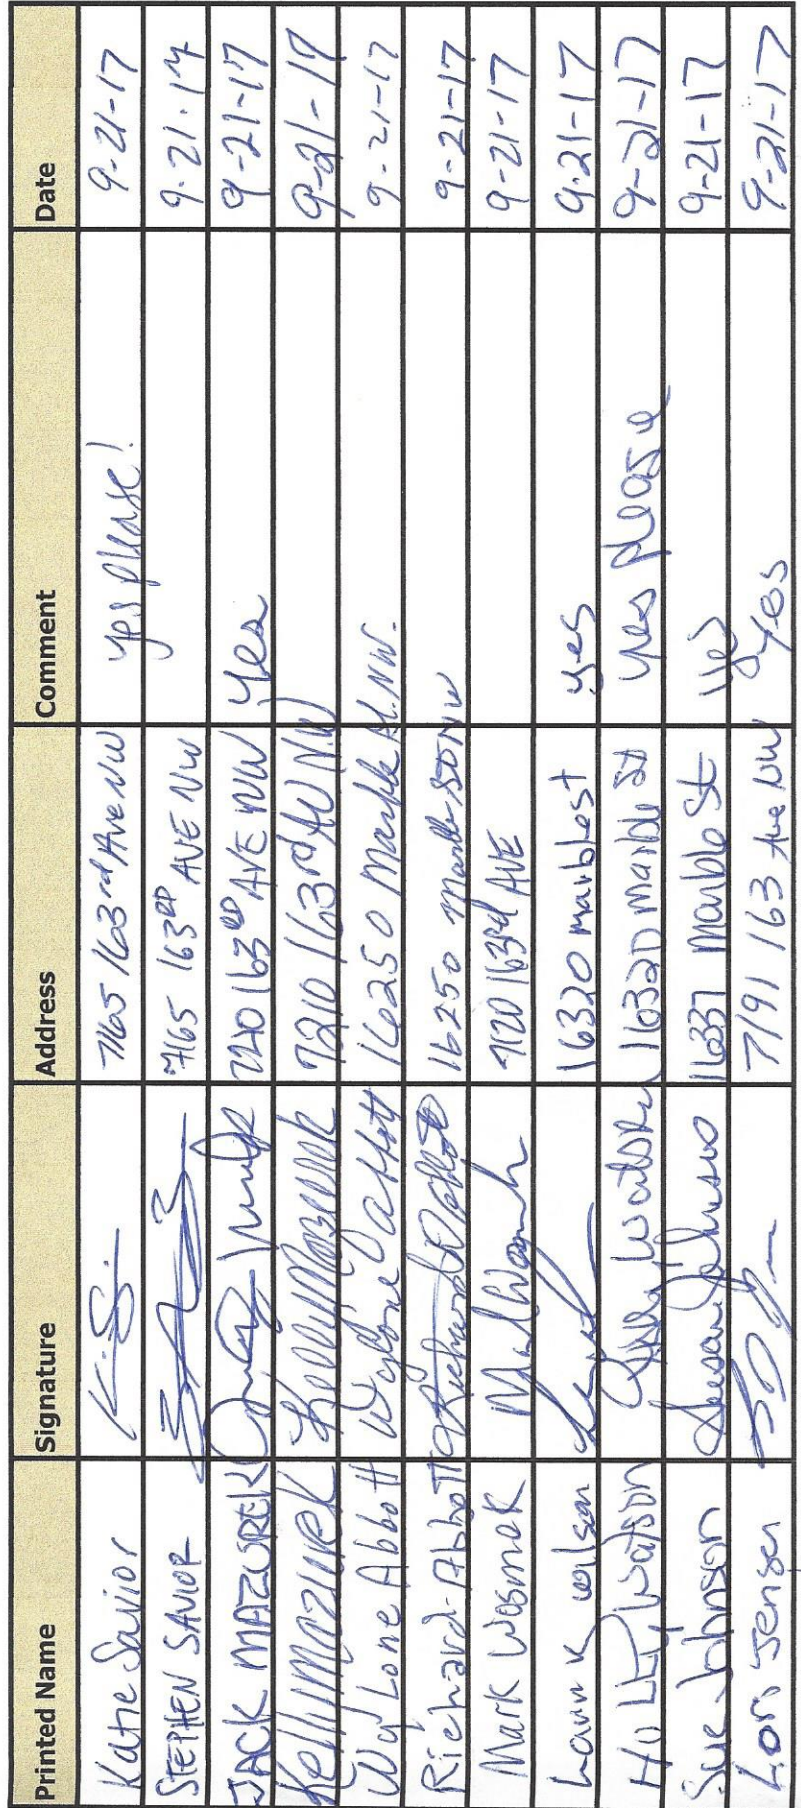 Printed Name Signature Address Comment Date
Katie Savior K. S. 7165 163rd Ave NW yes please! 9-21-17
STEPHEN SAVIOR 7165 163RD AVE NW 9-21-17
JACK MAZUREK 7210 163RD AVE NW yes 9-21-17
Kelly Mazurek Kelly Mazurek 7210 163rd AV N.W 9-21-17
Wylone Abbott Wylone Abbott 16250 Marble St. NW. 9-21-17
Richard Abbott Richard Abbott 16250 Marble ST NW 9-21-17
Mark Wosmek 7120 163rd AVE 9-21-17
16320 marble st yes 9-21-17
Holly Watson Holly Watson 16320 Marble St yes please 9-21-17
Sue Johnson Susan Johnson 16337 Marble St yes 9-21-17
Lori Jensen 7191 163 Ave NW yes 9-21-17